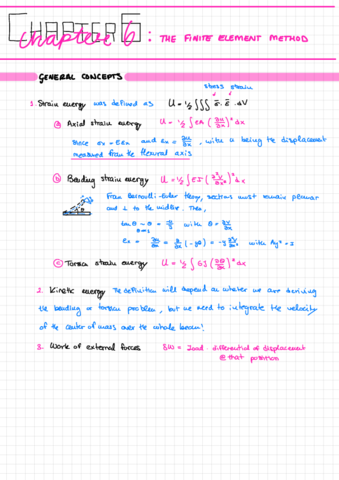 CHAPTER 6
chapter 6: THE FINITE ELEMENT METHOD
GENERAL CONCEPTS
stress strain
1. Strain energy was defined as U = 1/2 ∫∫∫ σ̄ · ε̄ · dV
a) Axial strain energy U = 1/2 ∫ EA (∂u/∂x)² dx
Since σx = Eεx and εx = ∂u/∂x, with u being the displacement
measured from the flexural axis
b) Bending strain energy U = 1/2 ∫ EI (∂²v/∂x²)² dx
From Bernoulli-Euler theory, sections must remain planar
and ⊥ to the midline. Then,
with θ = ∂v/∂x
c) Torsion strain energy U = 1/2 ∫ GJ (∂θ/∂x)² dx
2. Kinetic energy The definition will depend on whether we are solving
the bending or torsion problem, but we need to integrate the velocity
of the center of mass over the whole beam!
3. Work of external forces δW = load · differential of displacement
@ that position